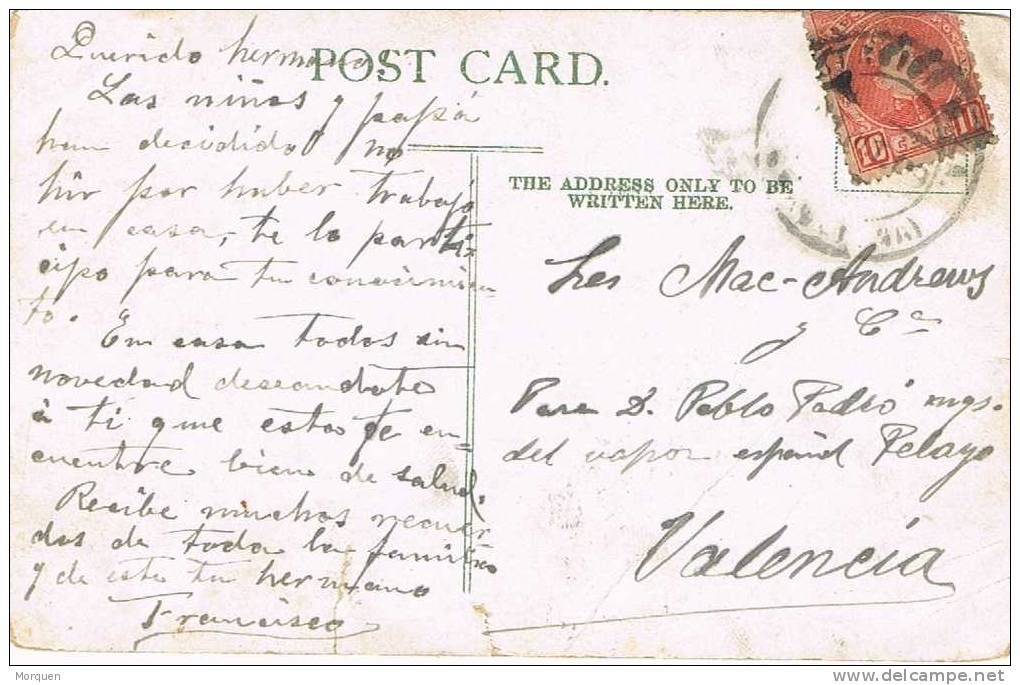 Querido hermano,
POST CARD.
Las niñas y papá
han decidido no
hir por haber trabajo
en casa, te lo parti=
cipo para tu conocimien
to.
En casa todos sin
novedad deseandote
à ti que esta te en=
cuentre bien de salud.
Recibe muchos recuer
dos de toda la familia
y de este tu hermano
Francisco
10 CENT 10
THE ADDRESS ONLY TO BE
WRITTEN HERE.
Sres Mac-Andrews
y Cª
Para D. Pablo Padró
del vapor español Pelayo
Valencia
Morquen
delcampe.net